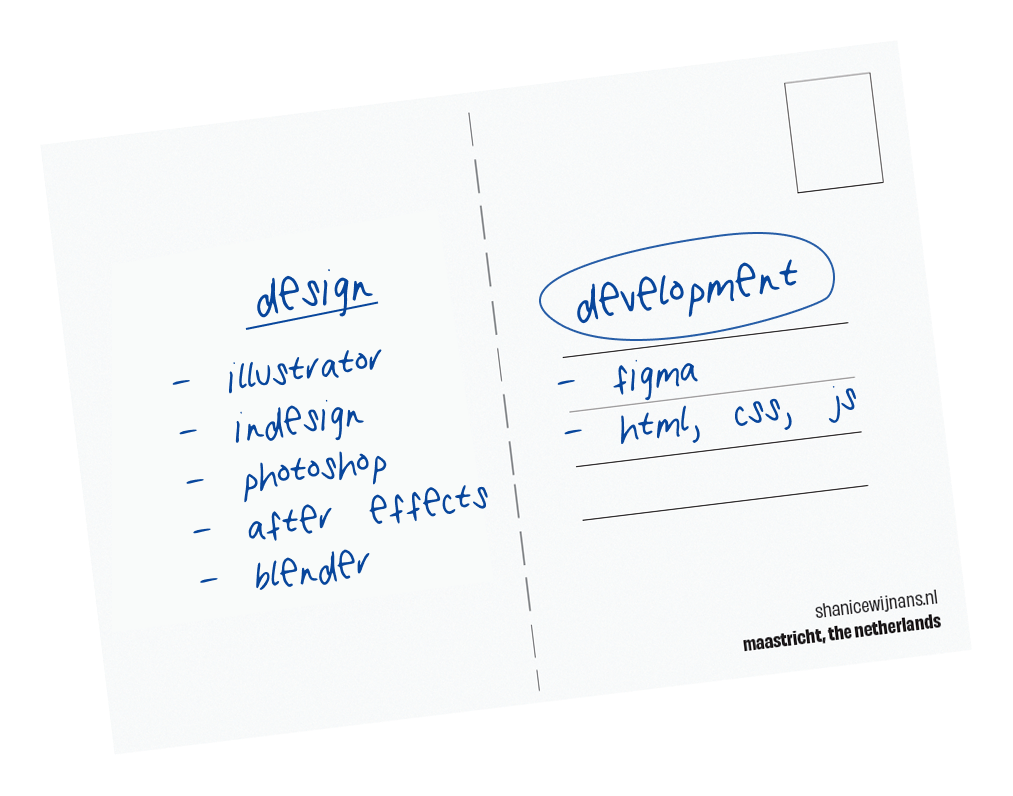 design
- illustrator
- indesign
- photoshop
- after effects
- blender
development
- figma
- html, css, js
shanicewijnans.nl
maastricht, the netherlands